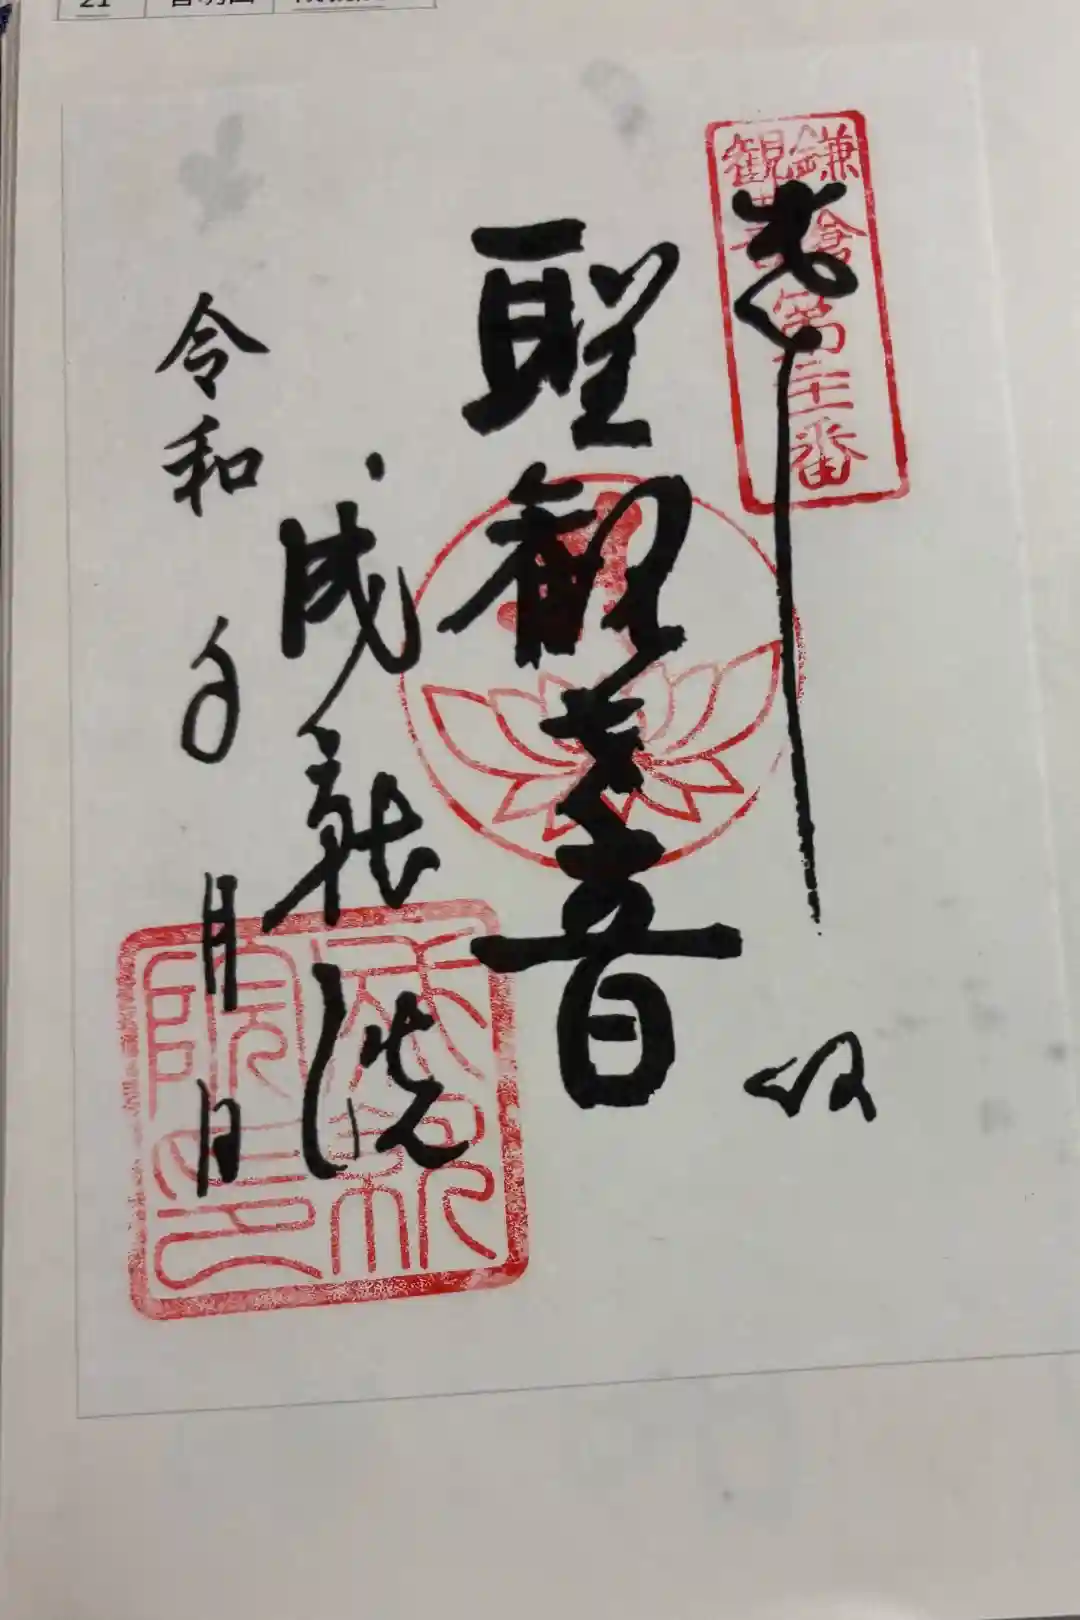 21
鎌倉
観音第廿一番
奉拝
聖観音
成就院
令和 年 月 日
成就院印